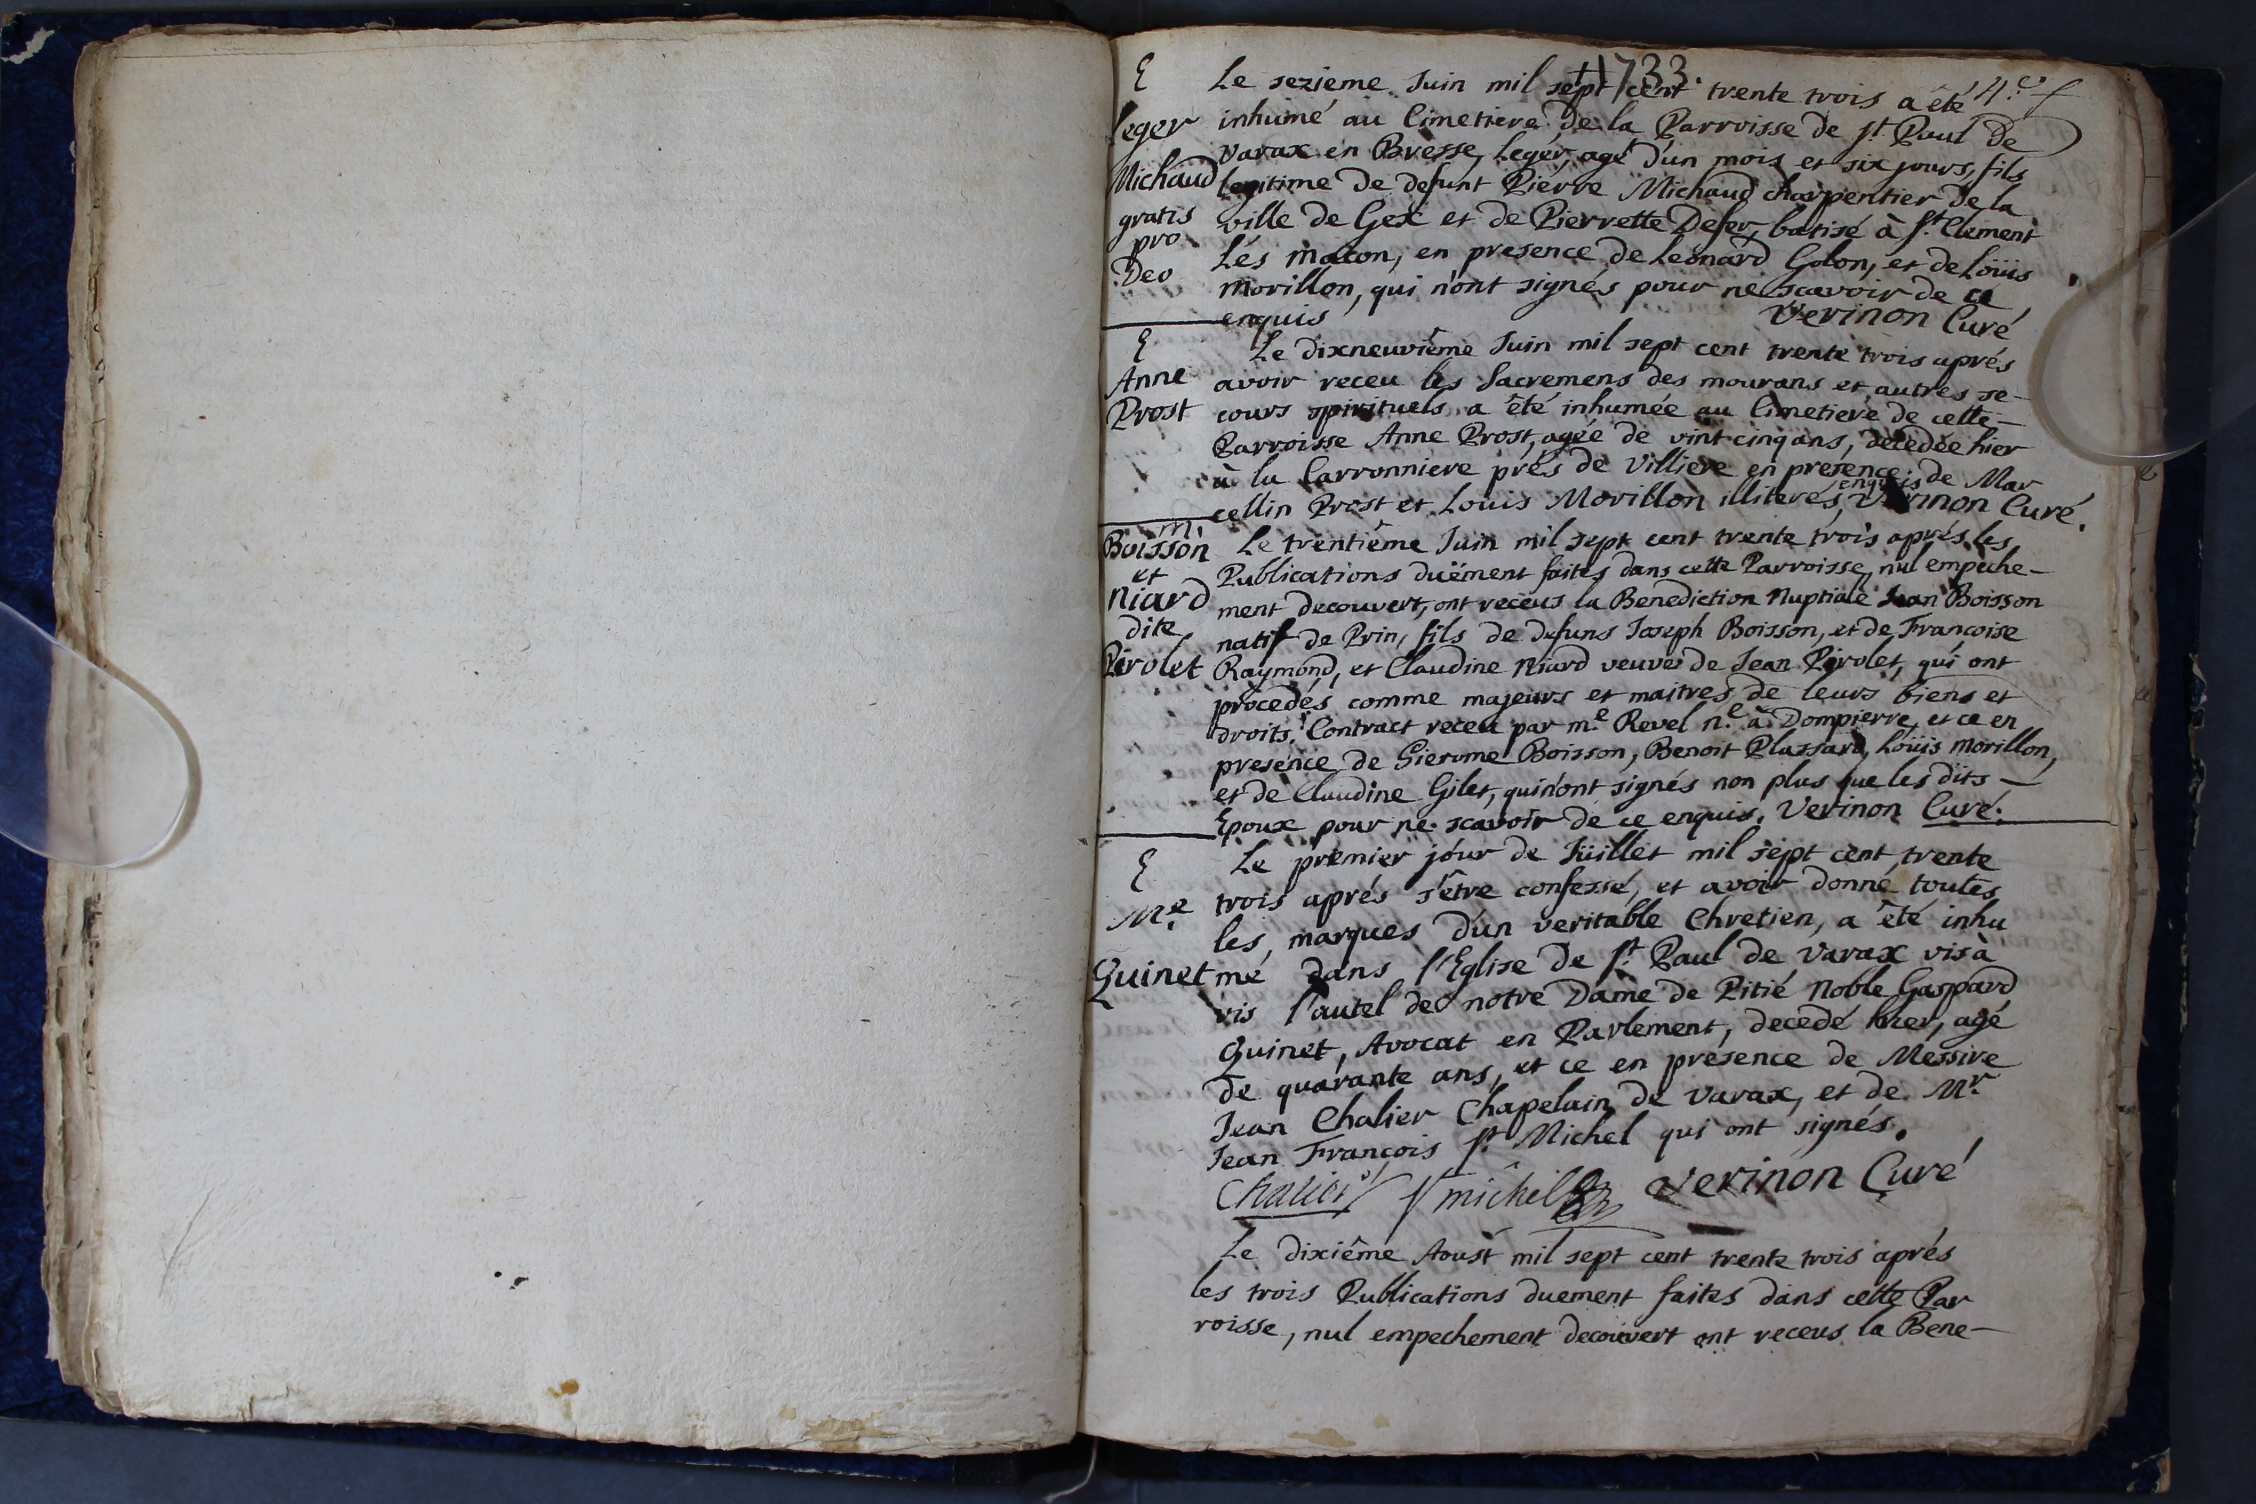 1733.
4.e f
E
Leger
Michaud
gratis
pro
Deo
Le sezieme Juin mil sept cent trente trois a été
inhumé au Cimetiere de la Parroisse de st Paul de
varax en Bresse, Leger, agé d'un mois et six jours, fils
legitime de defunt Pierre Michaud charpentier de la
ville de Gex et de Pierrette Defer, batisé à st Clement
Lés macon, en presence de Leonard Golon, et de Loüis
morillon, qui n'ont signés pour ne scavoir de ce
enquis Verinon Curé
E
Anne
Prost
Le dixneuviême Juin mil sept cent trente trois aprés
avoir receu les Sacremens des mourans et autres se-
cours spirituels a été inhumée au Cimetiere de cette
Parroisse Anne Prost, agée de vint cinq ans, decedée hier
à la Carronniere prés de Villiere en presence de Mar
cellin Prost et Louis Morillon illiterés, enquis Verinon Curé.
m.
Boisson
et
Niard
dite
Pirolet
Le trentiême Juin mil sept cent trente trois aprés les
Publications duëment faites dans cette Parroisse, nul empeche-
ment decouvert, ont receus la Benediction Nuptiale Jean Boisson
natif de Prin, fils de defuns Joseph Boisson, et de Francoise
Raymond, et Claudine Niard veuve de Jean Pirolet, qui ont
procedés comme majeurs et maitres de leurs biens et
droits. Contract receu par me. Revel ne. à Dompierre, et ce en
presence de Gierome Boisson, Benoit Plassard, Loüis morillon,
et de Claudine Gilet, qui n'ont signés non plus que les dits
Epoux pour ne scavoir de ce enquis. Verinon Curé.
E
Me.
Guinet
Le premier jour de Jüillet mil sept cent trente
trois aprés s'être confessé, et avoir donné toutes
les marques d'un veritable Chretien, a été inhu
mé dans l'Eglise de st. Paul de varax vis à
vis l'autel de notre Dame de Pitié Noble Gaspard
Guinet, Avocat en Parlement, decedé hier, agé
de quarante ans, et ce en présence de Messire
Jean Chalier Chapelain de varax, et de Mr.
Jean François st. Michel qui ont signés.
Chalier st michel Verinon Curé
Le dixiême Aoust mil sept cent trente trois aprés
les trois Publications duement faites dans cette Par
roisse, nul empechement decouvert ont receus la Bene-